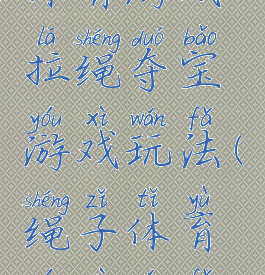 lā shéng duó bǎo
拉绳夺宝
yóu xì wán fǎ
游戏玩法(
shéng zǐ tǐ yù
绳子体育